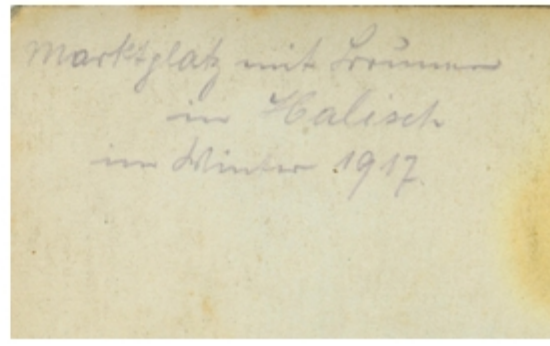 Marktplatz mit Brunnen
in Kalisch
im Winter 1917